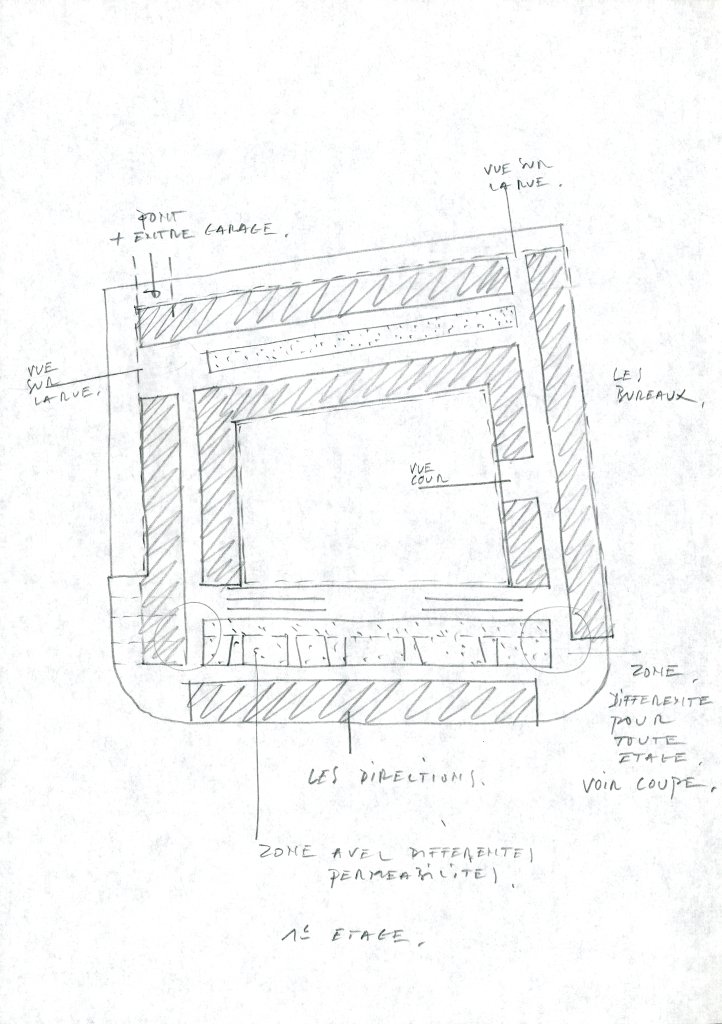 VUE SUR
LA RUE.
PONT
+ ENTRE GARAGE.
VUE
SUR
LA RUE.
LES
BUREAUX.
VUE
COUR
ZONE.
DIFFERENTE
POUR
TOUTE
ETAGE.
VOIR COUPE.
LES DIRECTIONS.
ZONE AVEC DIFFERENTES
PERMEABILITES.
1E ETAGE.